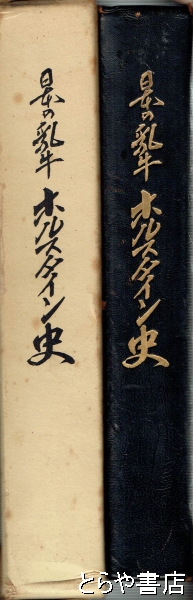 日本の乳牛 ホルスタイン史
日本の乳牛 ホルスタイン史
とらや書店